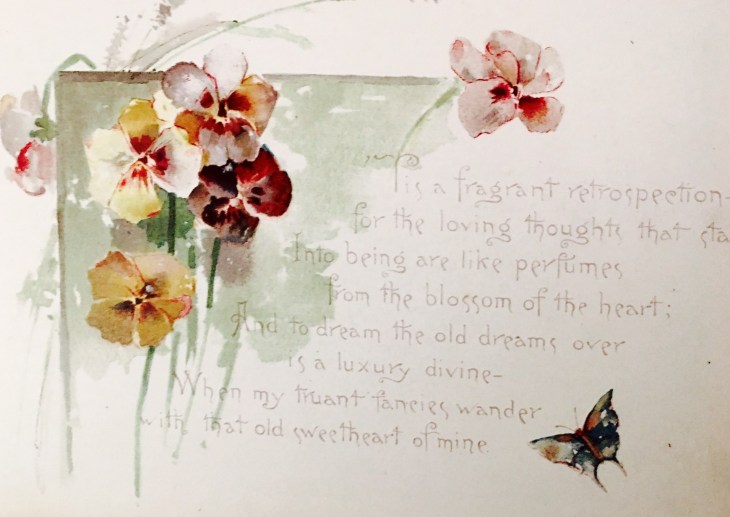 'Tis a fragrant retrospection-
for the loving thoughts that sta
Into being are like perfumes
from the blossom of the heart;
And to dream the old dreams over
is a luxury divine-
When my truant fancies wander
with that old sweetheart of mine.